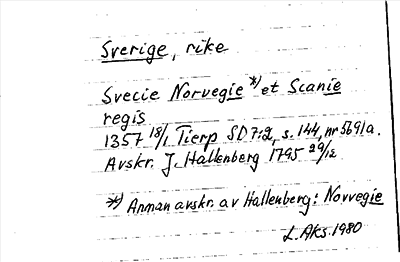 Sverige, rike
Svecie Norvegie *) et Scanie
regis
1357 18/1 Tierp SD 7:2, s. 144, nr 5691a.
Avskr. J. Hallenberg 1795 29/12
*) Annan avskr. av Hallenberg: Novvegie
L. Aks. 1980